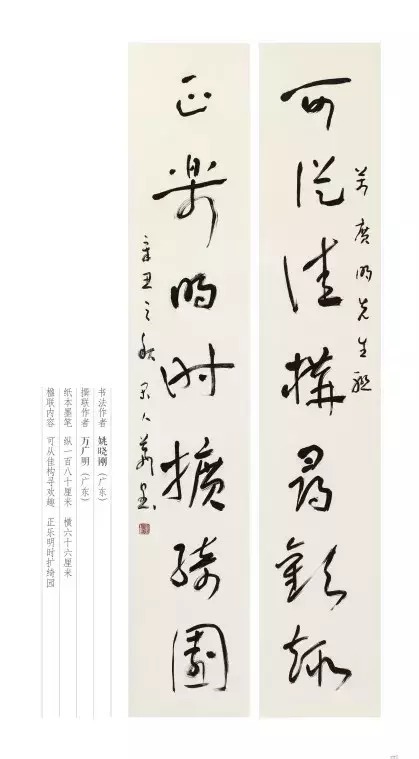 可從佳構尋歡趣
万廣明先生联
正樂明时擴綺園
辛丑之秋
书法作者 姚晓刚（广东）
撰联作者 万广明（广东）
纸本墨笔 纵一百八十厘米 横六十六厘米
楹联内容 可从佳构寻欢趣 正乐明时扩绮园